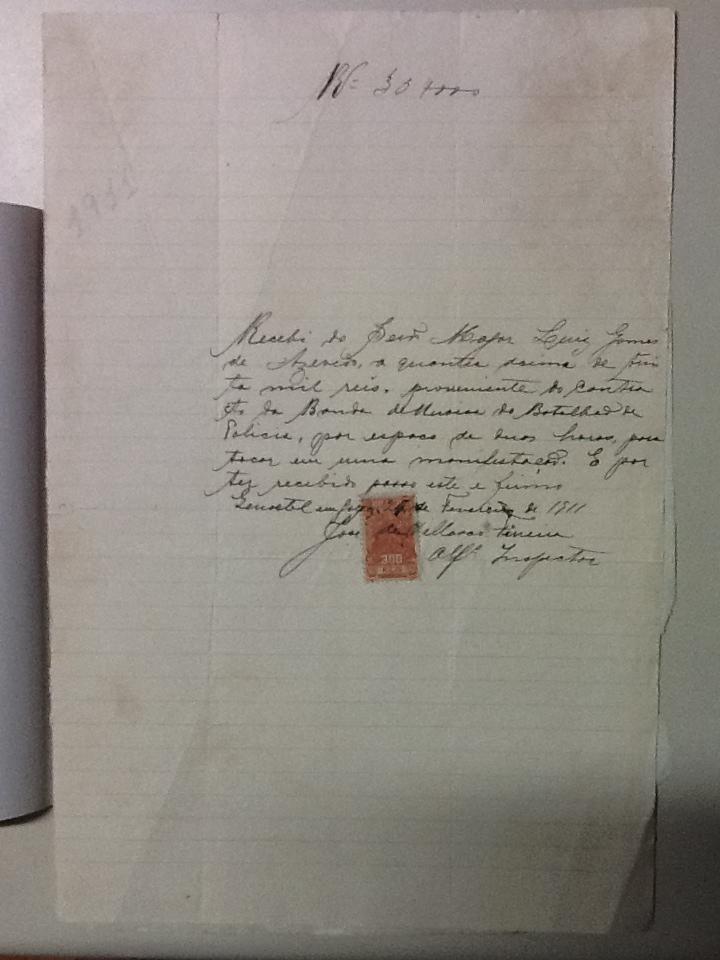 Rs 30$000
1911
Recebi do Exmo Major Luiz Gomes
de Azevedo, a quantia acima de trin
ta mil reis, proveniente do contra
cto da Banda de Musica do Batalhão de
Policia, por espaço de duas horas, para
tocar em uma manifestação. E por
ter recebido passo este e firmo
de Fevereiro de 1911
José de
300
REIS
Alfs Inspector